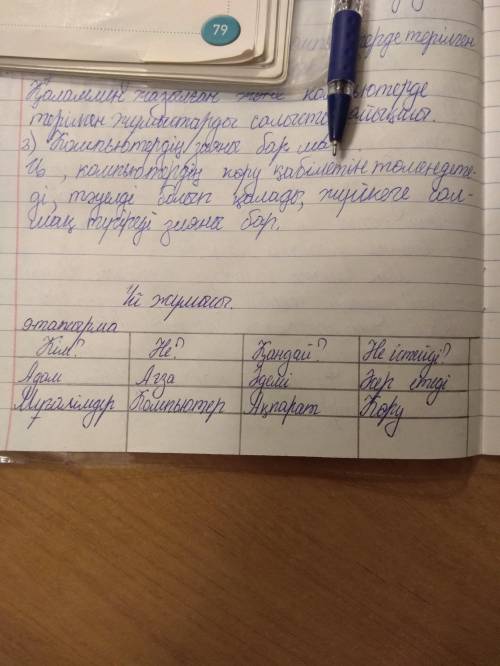 79
терде терілген
Қаламмен жазылған және компьютерде
терілген жұмыстарды салысты
2) Компьютердің зияны бар ма
Иә, компьютердің көру қабілетін төмендете-
ді, тәуелді болып қалады, жүйкеге сал-
мақ түсіреді зияны бар.
Үй жұмысы.
3тапсырма
Кім? Не? Қандай? Не істейді?
Адам Ағза Әдемі Әсер етеді
Мұғалімдер Компьютер Ақпарат Көру